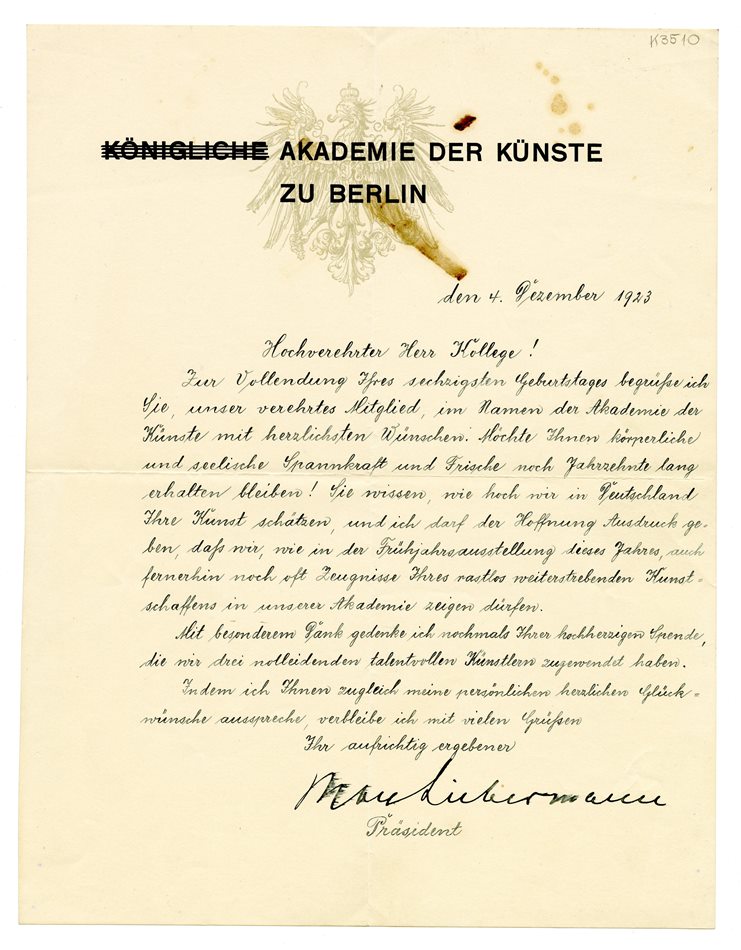 K3510
KÖNIGLICHE AKADEMIE DER KÜNSTE
ZU BERLIN
den 4. Dezember 1923
Hochverehrter Herr Kollege!
Zur Vollendung Ihres sechzigsten Geburtstages begrüße ich
Sie, unser verehrtes Mitglied, im Namen der Akademie der
Künste mit herzlichsten Wünschen. Möchte Ihnen körperliche
und seelische Spannkraft und Frische noch Jahrzehnte lang
erhalten bleiben! Sie wissen, wie hoch wir in Deutschland
Ihre Kunst schätzen, und ich darf der Hoffnung Ausdruck ge-
ben, daß wir, wie in der Frühjahrsausstellung dieses Jahres, auch
fernerhin noch oft Zeugnisse Ihres rastlos weiterstrebenden Kunst-
schaffens in unserer Akademie zeigen dürfen.
Mit besonderem Dank gedenke ich nochmals Ihrer hochherzigen Spende,
die wir drei notleidenden talentvollen Künstlern zugewendet haben.
Indem ich Ihnen zugleich meine persönlichen herzlichen Glück-
wünsche ausspreche, verbleibe ich mit vielen Grüßen
Ihr aufrichtig ergebener
Max Liebermann
Präsident